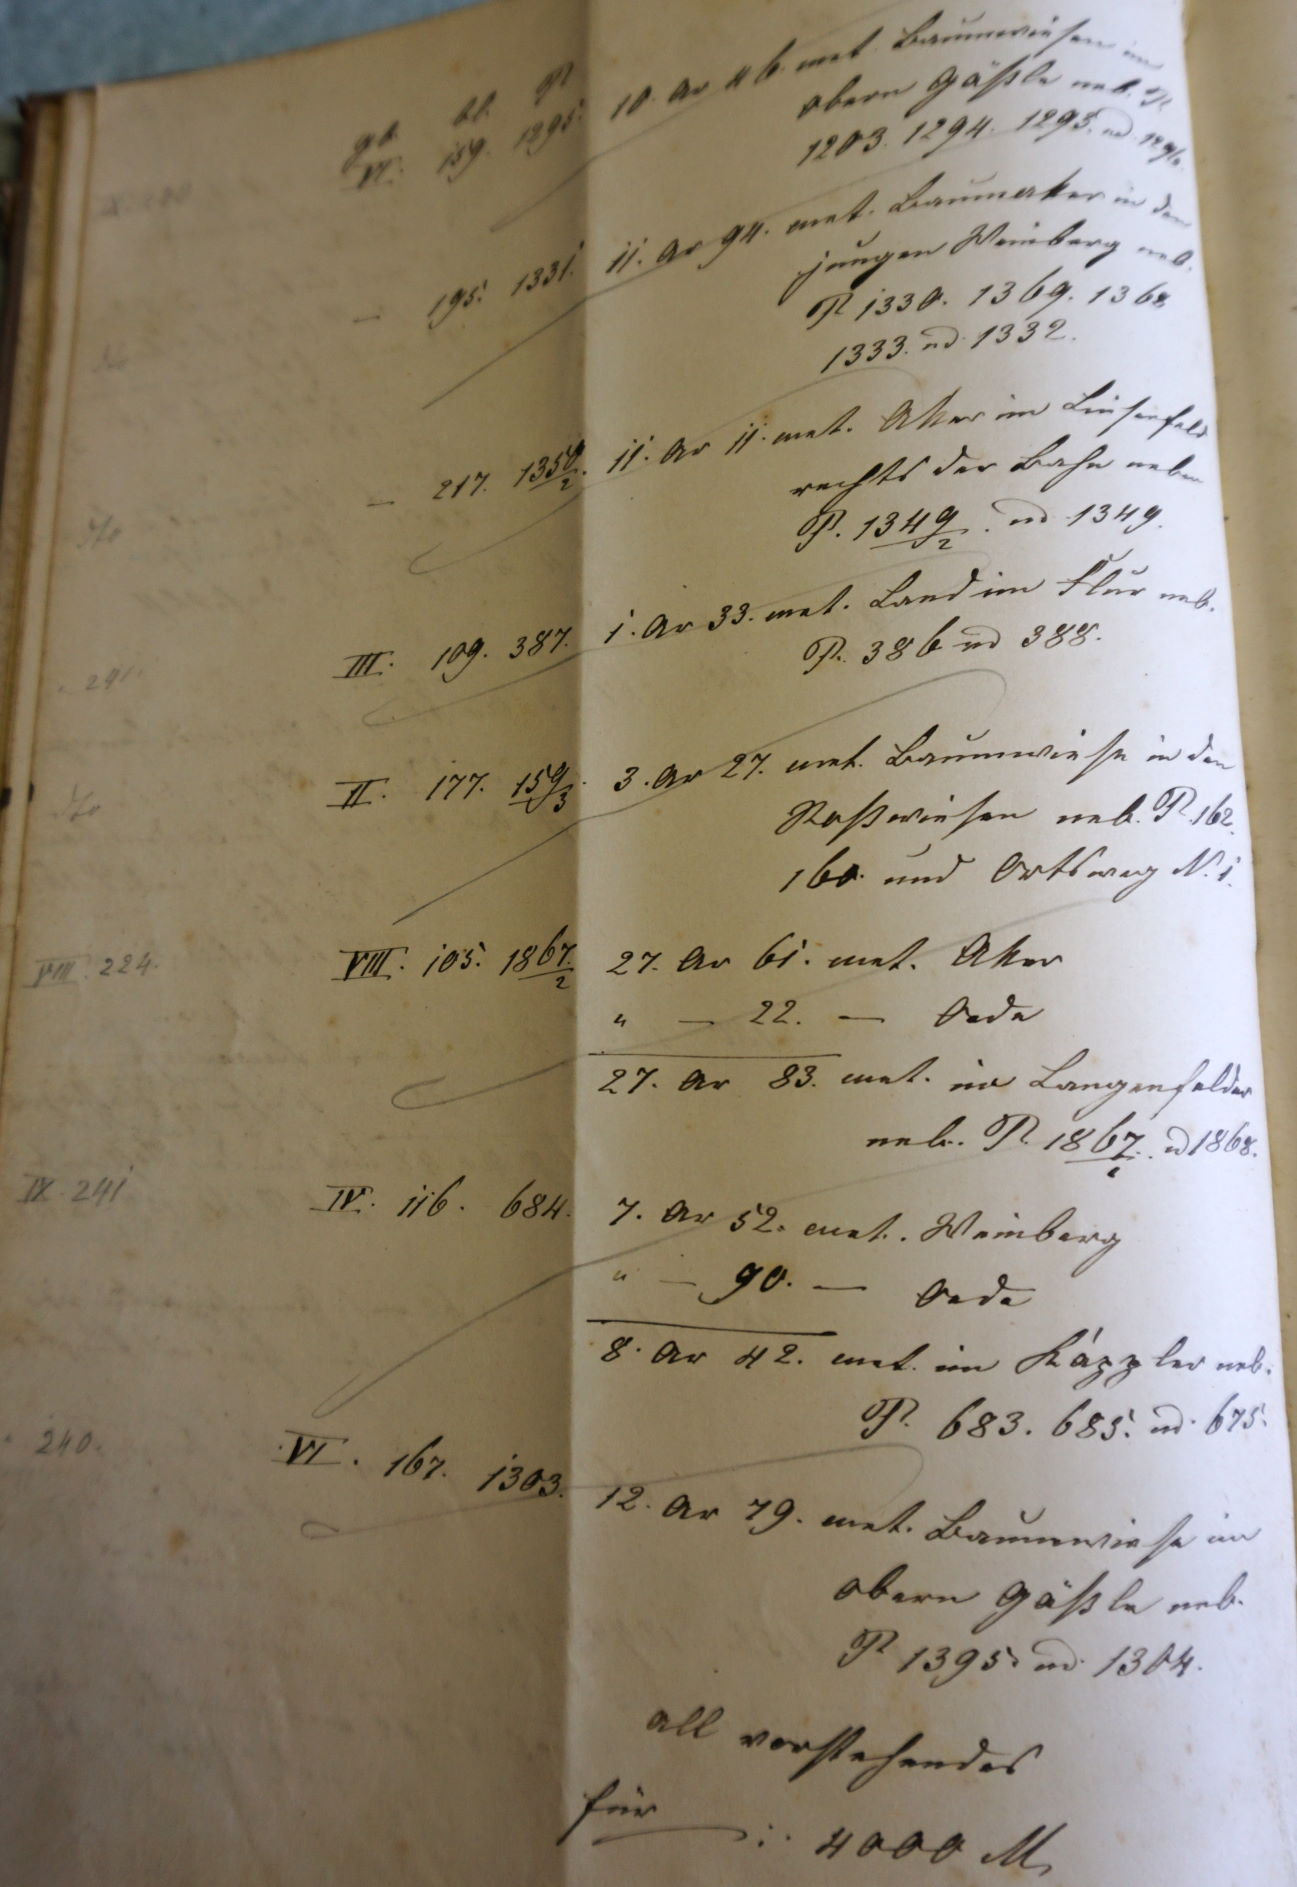 gb. bl. P.
VI. 159. 1295. 10. Ar 46. met. Baumwiesen im
obern Gäßle neb. P.
1203. 1294. 1293. ud. 1296.
— 195. 1331. 11. Ar 94. met. Baumaker in den
jungen Weinberg neb.
P. 1330. 1369. 1368.
1333. ud. 1332.
— 217. 1350/2. 11. Ar 11. met. Aker im Linsenfeld
rechts der Bahn neben
P. 1349/2. ud 1349.
III. 109. 387. 1. Ar 33. met. Land im Flur neb.
P. 386 ud 388.
II. 177. 159/3. 3. Ar 27. met. Baumwiese in den
Roßwiesen neb. P. 162.
160. und Ortsweg N. 1.
VIII. 224. VIII. 105. 1867/2. 27. Ar 61. met. Aker
" — 22. — Oede
27. Ar 83. met. im Langenfelder
neb. P. 1867/1. ud 1868.
IX. 241 IV. 116. 684. 7. Ar 52. met. Weinberg
" — 90. — Oede
8. Ar 42. met. im Käppler neb.
P. 683. 685. ud. 675.
240. VI. 167. 1303. 12. Ar 79. met. Baumwiese im
obern Gäßle neb.
P. 1395. ud. 1304.
all vorstehendes
für : 4000 M.